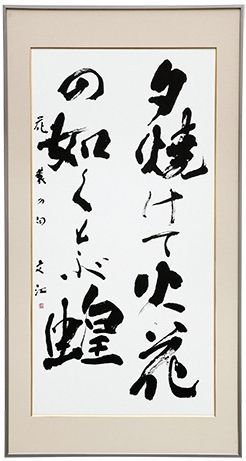 夕焼けて火花
の如くとぶ蝗
花蓑の句 文江